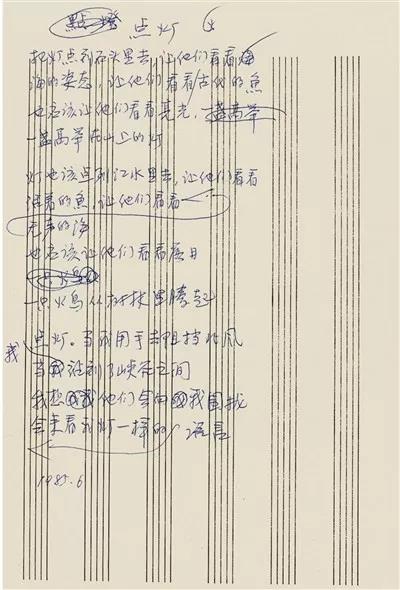 點燈 点灯
把灯点到石头里去,让他们看看海
海的姿态,让他们看看古代的魚
也应该让他们看看亮光,一盏高举
一盏高举在山上的灯
灯也该点到江水里去,让他们看看
活着的魚,让他们看看
无声的海
也应该让他们看看落日
一只火鸟
一只火鸟从树林里腾起
点灯。当我用手去阻挡北风
当我站到了峡谷之间
我想他们会向我围拢
会来看我灯一样的语言
1985.6